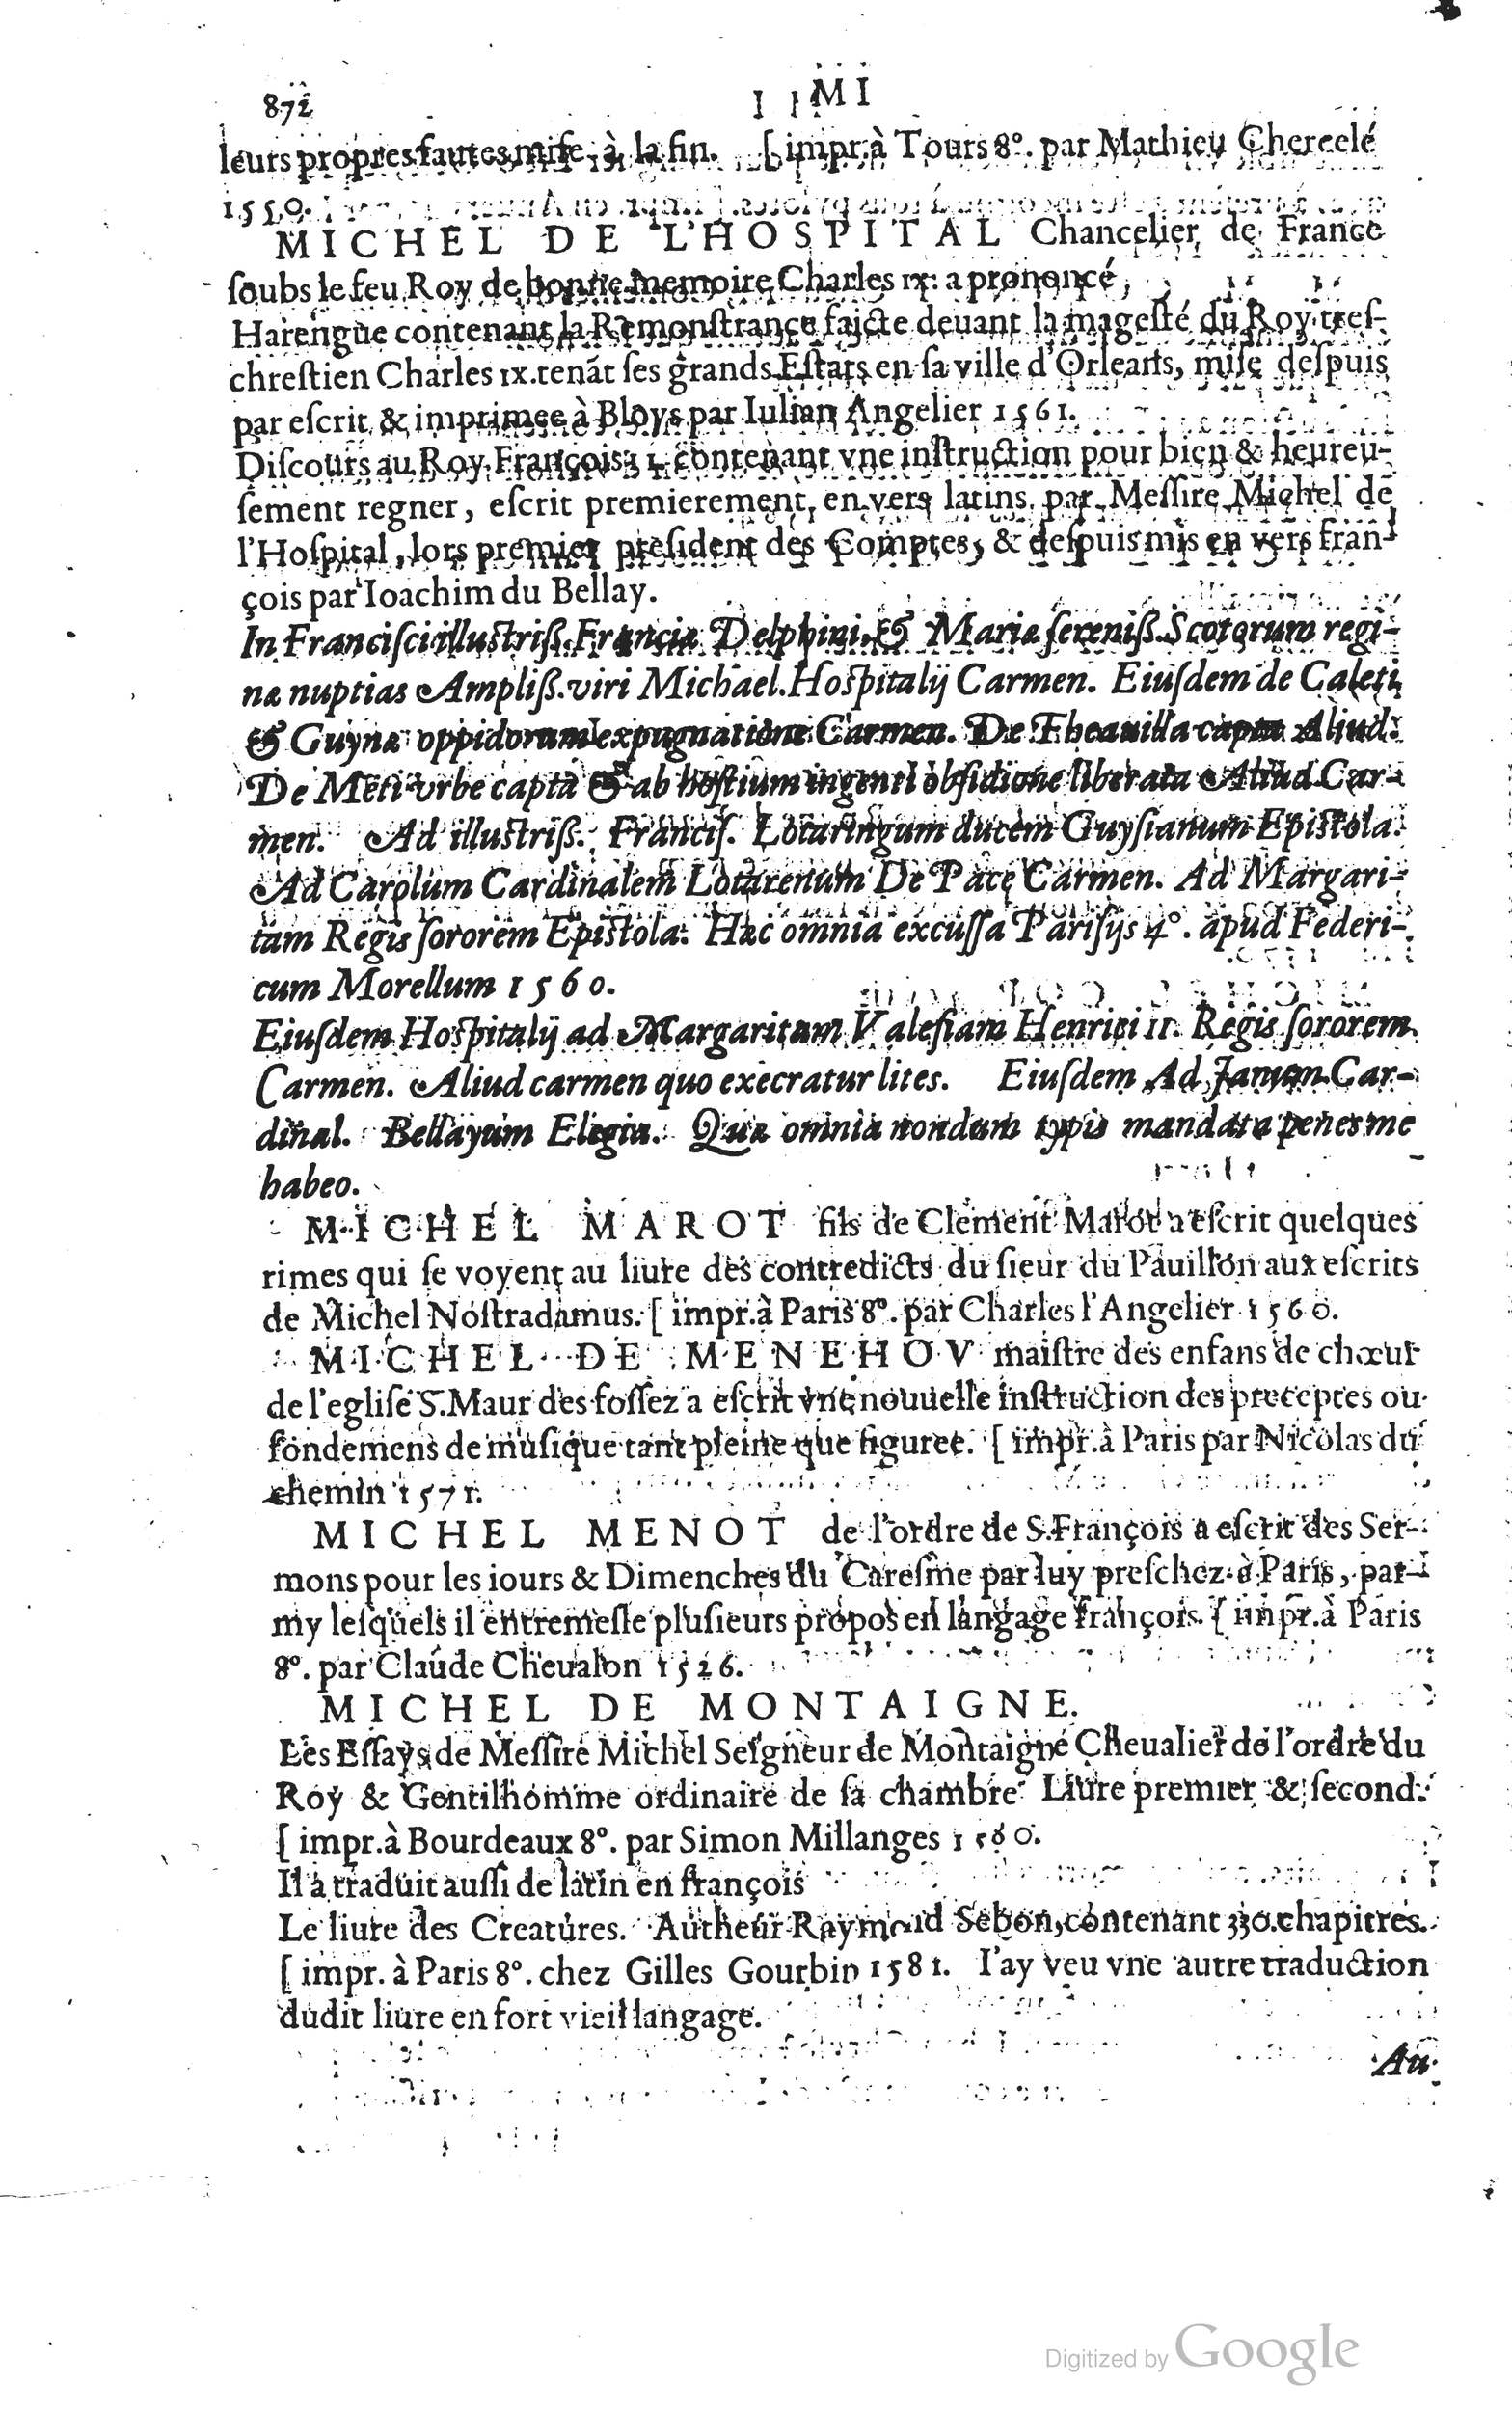 872 MI
leurs propres fautes mise à la fin. [impr. à Tours 8°. par Mathieu Chercelé
1550.
MICHEL DE L'HOSPITAL Chancelier de France
ſoubs le feu Roy de bonne memoire Charles IX. a prononcé,
Harengue contenant la Remonſtrance faicte deuant la mageſté du Roy treſ-
chreſtien Charles IX. tenāt ſes grands Eſtats en ſa ville d'Orleans, miſe deſpuis
par eſcrit & imprimee à Bloys par Iulian Angelier 1561.
Diſcours au Roy François II. contenant vne inſtruction pour bien & heureu-
ſement regner, eſcrit premierement en vers latins par Meſſire Michel de
l'Hoſpital, lors premier preſident des Comptes, & deſpuis mis en vers fran-
çois par Ioachim du Bellay.
In Franciſci illuſtriß. Franciæ Delphini, & Mariæ ſereniß. Scotorum regi-
næ nuptias Ampliß. viri Michael. Hoſpitalij Carmen. Eiuſdem de Caleti
& Guynæ oppidorum expugnatione Carmen. De Theauilla capta Aliud.
De Meti vrbe capta & ab hoſtium ingenti obſidione liberata Aliud Car-
men. Ad illuſtriß. Franciſ. Lotaringum ducem Guyſianum Epiſtola.
Ad Carolum Cardinalem Lotarenum De Pace Carmen. Ad Margari-
tam Regis ſororem Epiſtola. Hæc omnia excuſſa Pariſijs 4°. apud Federi-
cum Morellum 1560.
Eiuſdem Hoſpitalij ad Margaritam Valeſiam Henrici II. Regis ſororem
Carmen. Aliud carmen quo execratur lites. Eiuſdem Ad Janum Car-
dinal. Bellayum Elegia. Quæ omnia nondum typis mandata penes me
habeo.
MICHEL MAROT fils de Clement Marot a eſcrit quelques
rimes qui ſe voyent au liure des contredicts du ſieur du Pauillon aux eſcrits
de Michel Noſtradamus. [impr. à Paris 8°. par Charles l'Angelier 1560.
MICHEL DE MENEHOV maiſtre des enfans de chœur
de l'egliſe S. Maur des foſſez a eſcrit vne nouuelle inſtruction des preceptes ou
fondemens de muſique tant pleine que figuree. [impr. à Paris par Nicolas du
chemin 1571.
MICHEL MENOT de l'ordre de S. François a eſcrit des Ser-
mons pour les iours & Dimenches du Careſme par luy preſchez à Paris, par-
my leſquels il entremeſle pluſieurs propos en langage françois. [impr. à Paris
8°. par Claude Cheualon 1526.
MICHEL DE MONTAIGNE.
Les Eſſays de Meſſire Michel Seigneur de Montaigne Cheualier de l'ordre du
Roy & Gentilhomme ordinaire de ſa chambre Liure premier & ſecond.
[impr. à Bourdeaux 8°. par Simon Millanges 1580.
Il a traduit auſſi de latin en françois
Le liure des Creatures. Autheur Raymond Sebon, contenant 330. chapitres.
[impr. à Paris 8°. chez Gilles Gourbin 1581. I'ay veu vne autre traduction
dudit liure en fort vieil langage.
Au
Digitized by Google